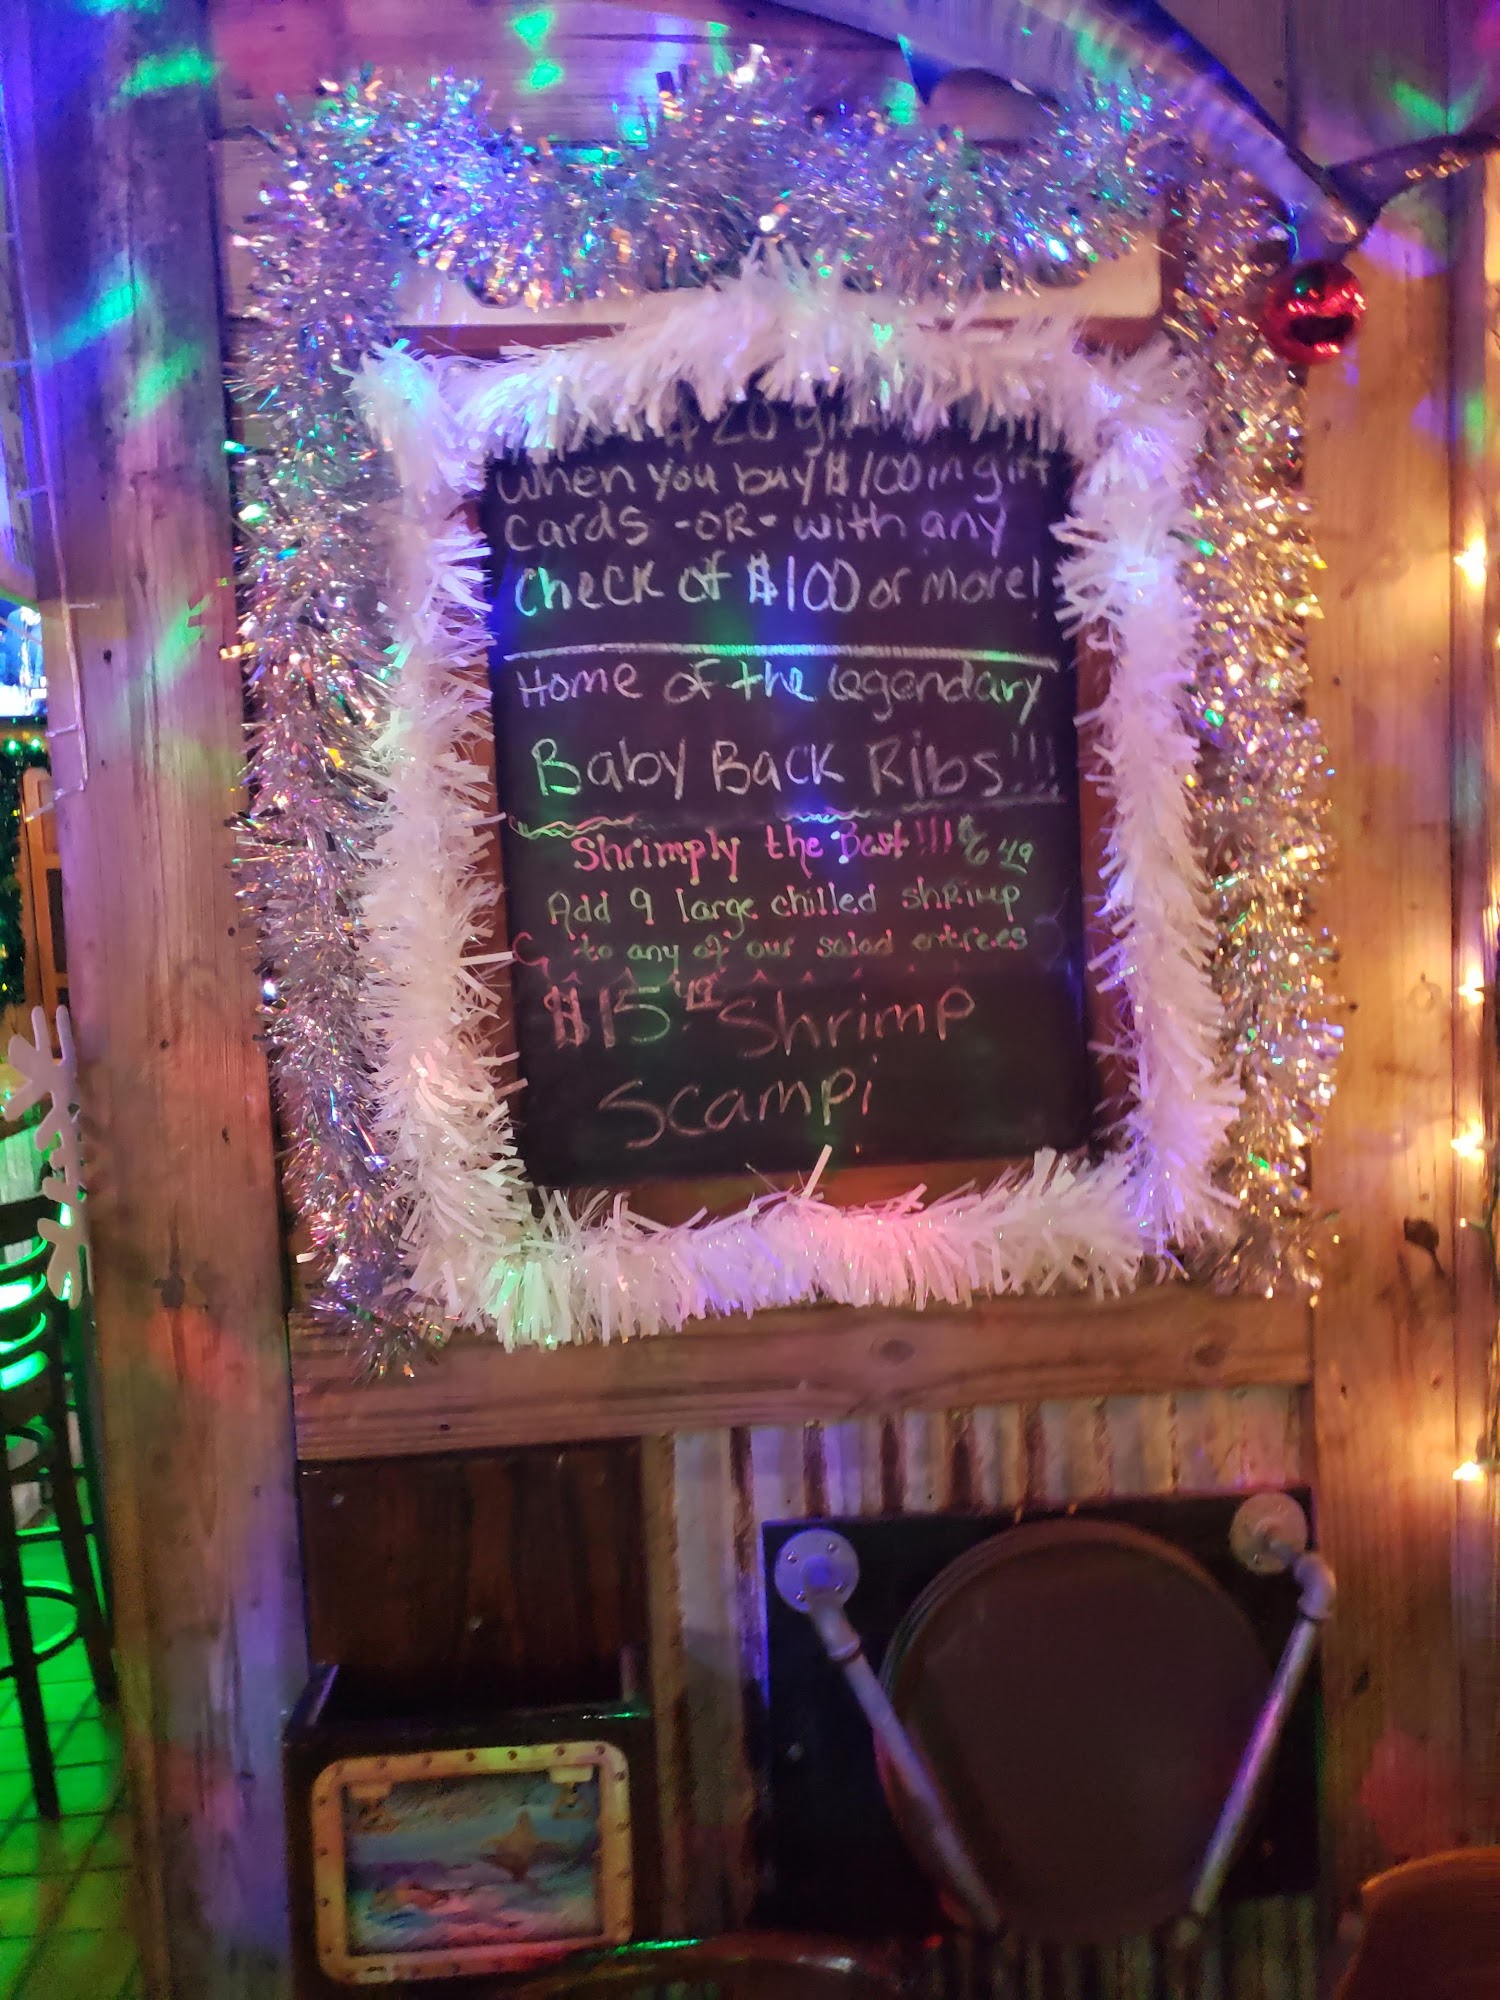 $20 gift
when you buy $100 in gift
cards -OR- with any
Check of $100 or more!
Home of the Legendary
Baby Back Ribs!!!
Shrimply the Best!!! $6.49
Add 9 large chilled shrimp
to any of our salad entrees
$15.49 Shrimp
Scampi